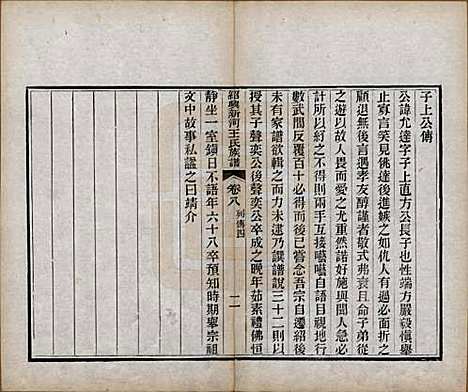 子上公傳
公諱允達字子上直方公長子也性端方嚴毅慎舉
止寡言笑見佛達後進嫉之如仇人有過必面折之
顧退無後言遇孝友醇謹者敬式弗衰且命子弟從
之遊以故人畏而愛之尤重然諾好施與聞人急必
計所以紓之不得則兩手互接囁囁自語目視地行
數武間反覆百十必得而後已嘗念吾宗自遷紹後
未有家譜欲輯之而力未逮乃譔譜說三十二則以
授其子聲奕公後聲奕公卒成之晚年茹素禮佛恒
紹興新河王氏族譜 卷八 列傳四 二
靜坐一室鎮日不語年六十八卒預知時期舉宗祖
文中故事私謚之曰靖介